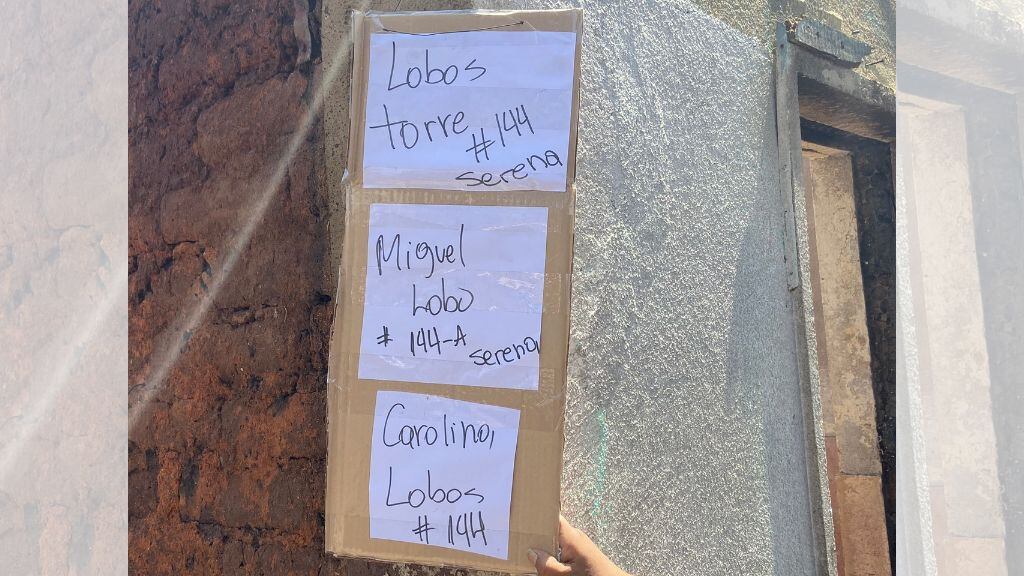 Lobos
torre #144
serena
Miguel
Lobo
# 144-A
serena
Carolina,
Lobos
# 144